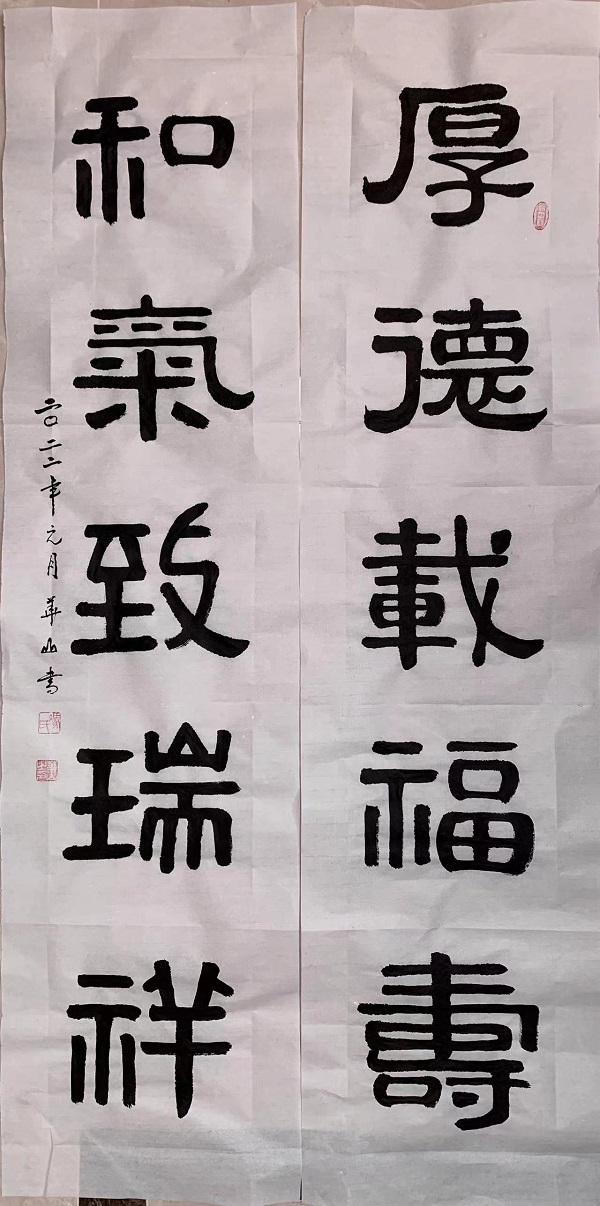 厚德載福壽
和氣致瑞祥
二〇二二年元月華山書